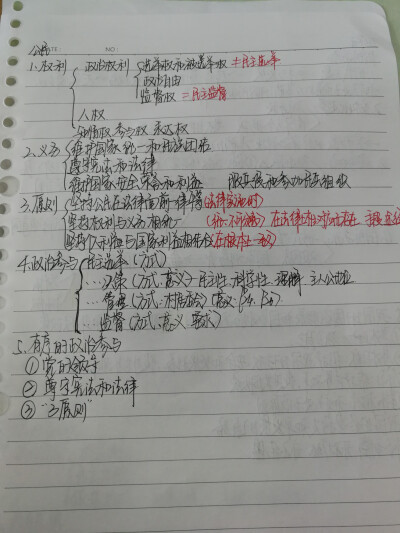 公民 DATE: NO:
1.权利 政治权利 选举权和被选举权 ≠民主选举
政治自由
监督权 =民主监督
人权
知情权 参与权 表达权
2.义务 维护国家统一和民族团结
遵守宪法和法律
维护国家安全荣誉和利益 服兵役和参加民兵组织
3.原则 坚持公民在法律面前一律平等
坚持权利与义务相统一 在法律
坚持个人利益与国家利益相结合 在根本上一致
4.政治参与 民主选举(方式)
…决策(方式、意义) 民主性 科学性 理解
…管理(方式:村居委会)(意义:
…监督(方式、意义 要求)
5.有序的政治参与
①党的领导
②遵守宪法和法律
③“三原则”